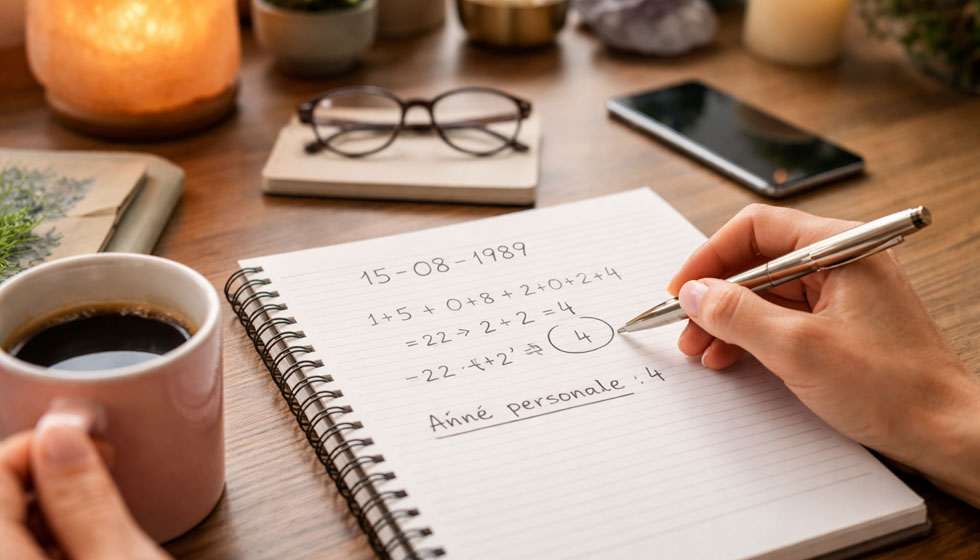 15-08-1989
1+5 + 0+8 + 2+0+2+4
= 22 → 2+2 = 4
4
Ańné personale : 4